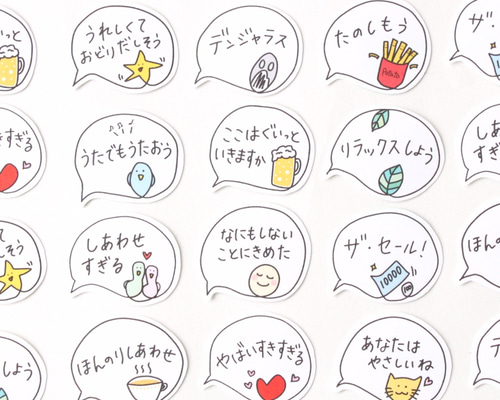 いっと
うれしくて
おどりだしそう
デンジャラス
たのしもう
POTATO
ザ・
すぎる
うたでもうたおう
ここはぐいっと
いきますか
リラックスしよう
しあ
すぎ
て
しそう
しあわせ
すぎる
なにもしない
ことにきめた
ザ・セール!
10000
100
ほんの
しよう
ほんのりしあわせ
やばいすきすぎる
あなたは
やさしいね
デ